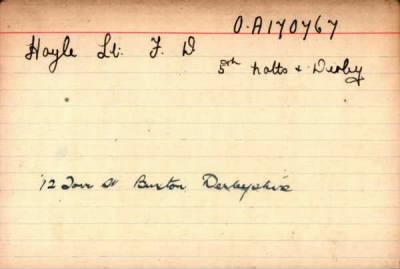 O.A170767
Hoyle Lt. F. D
5th Notts & Derby
12 Torr St Buxton Derbyshire